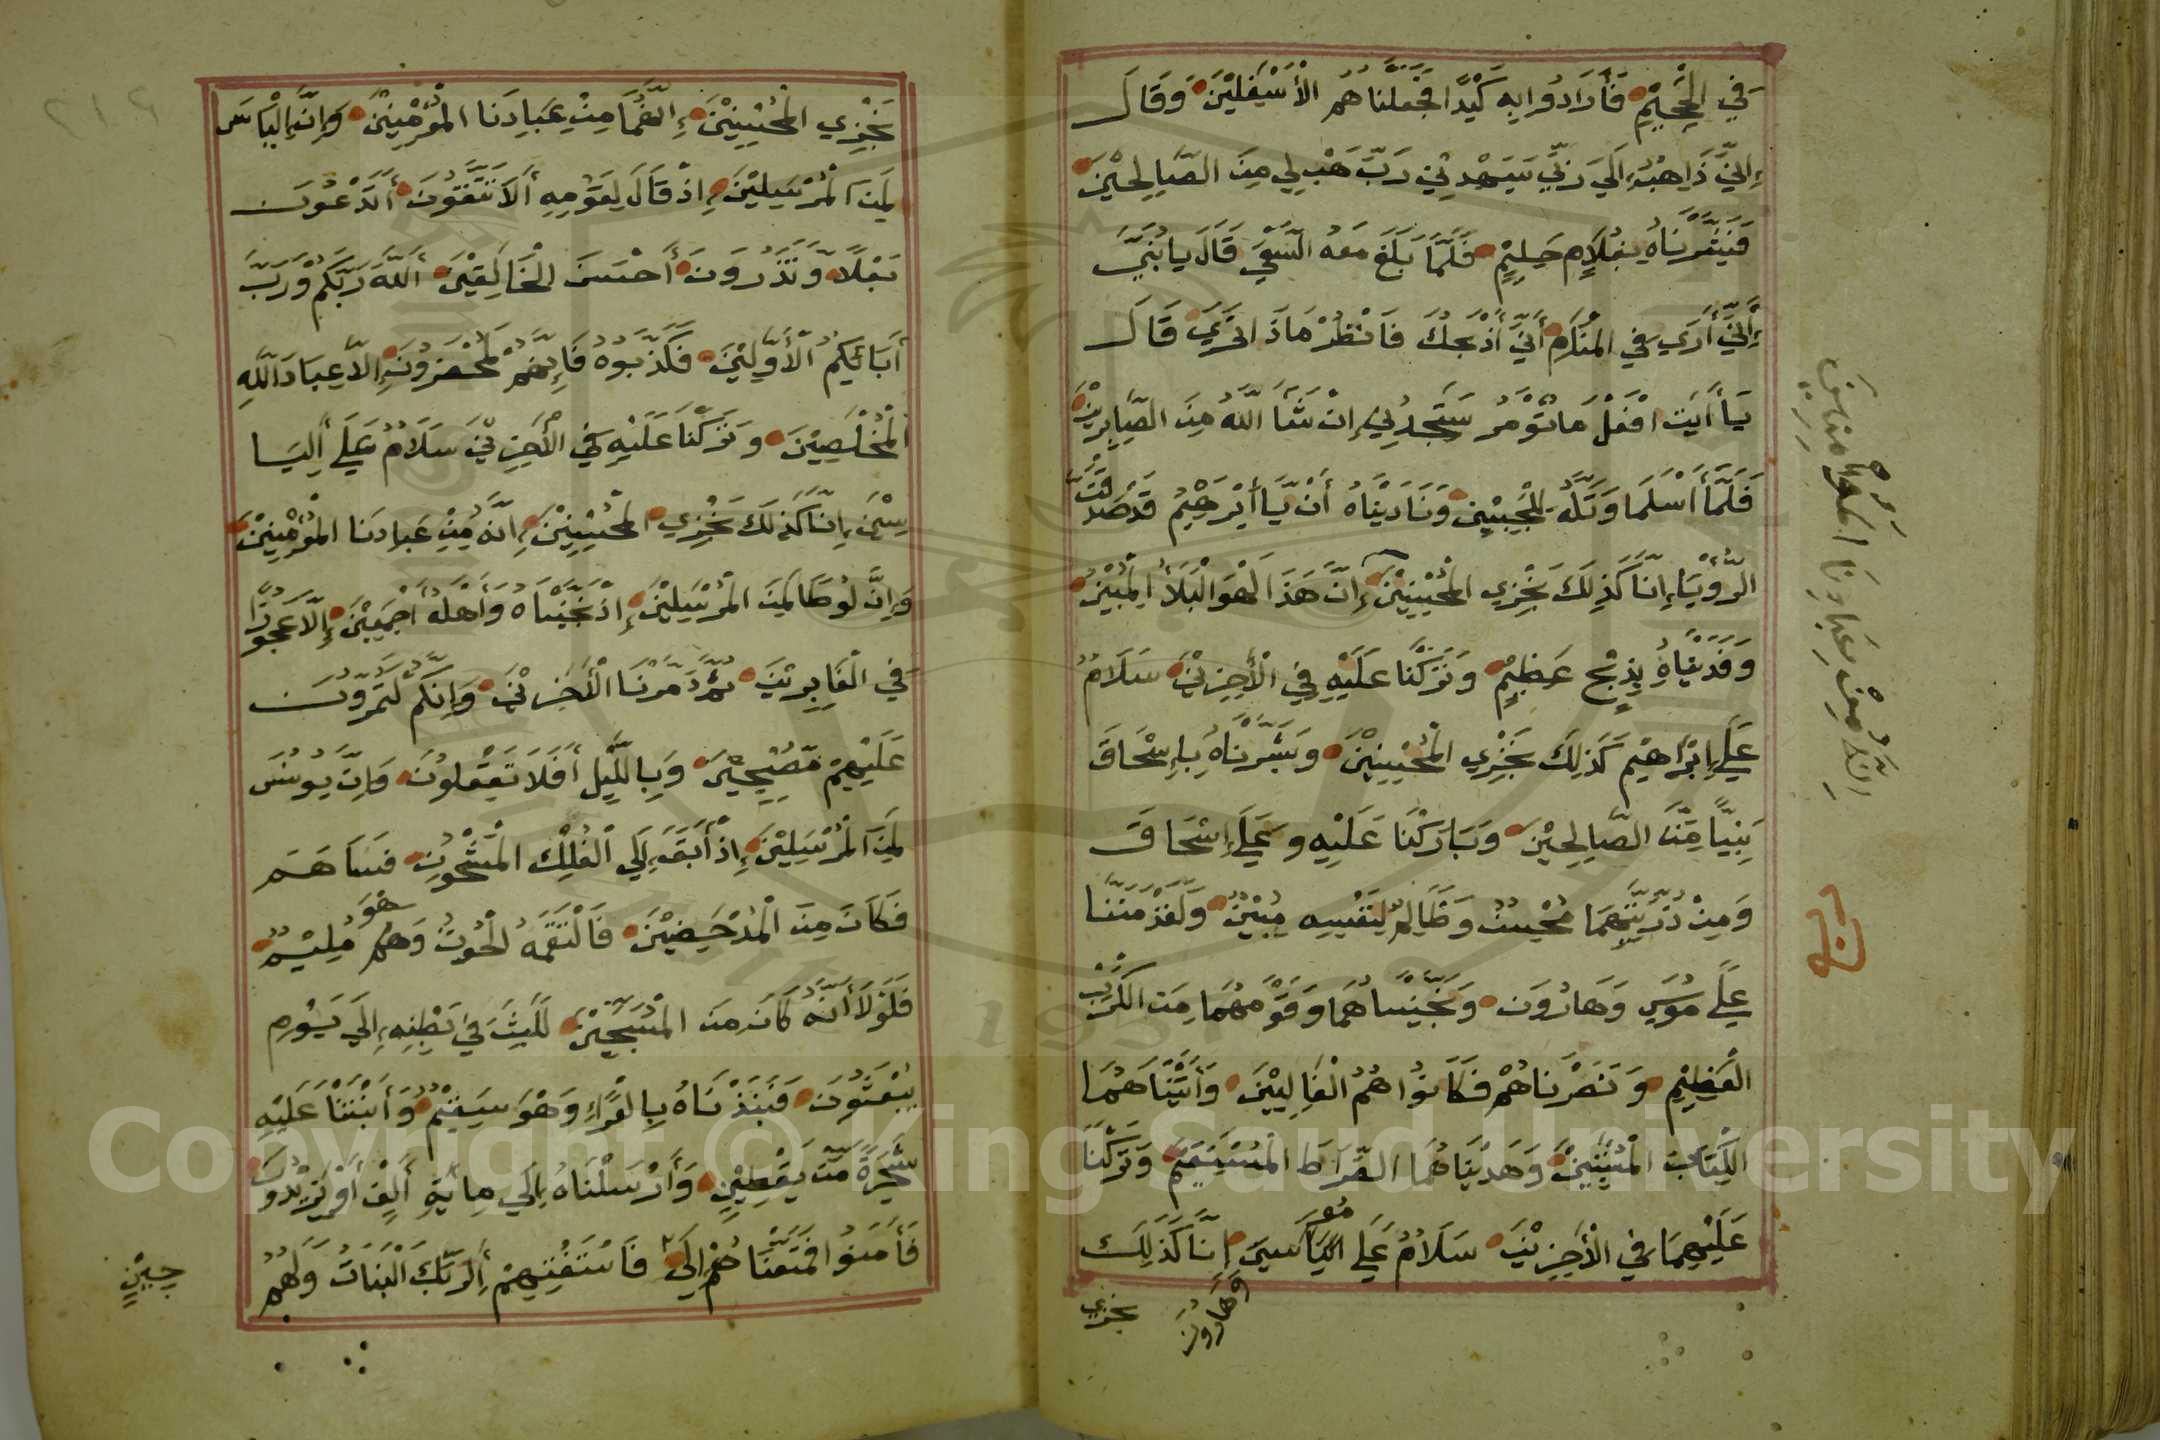 في الْجَحِيْمِ فَأَرَادُوا بِهِ كَيْدًا فَجَعَلْنَاهُمُ الْأَسْفَلِيْنَ وَقَالَ
إِنِّي ذَاهِبٌ إِلَى رَبِّي سَيَهْدِيْنِ رَبِّ هَبْ لِي مِنَ الصَّالِحِيْنَ
فَبَشَّرْنَاهُ بِغُلَامٍ حَلِيْمٍ فَلَمَّا بَلَغَ مَعَهُ السَّعْيَ قَالَ يَا بُنَيَّ
إِنِّي أَرَى فِي الْمَنَامِ أَنِّي أَذْبَحُكَ فَانْظُرْ مَاذَا تَرَى قَالَ
يَا أَبَتِ افْعَلْ مَا تُؤْمَرُ سَتَجِدُنِي إِنْ شَاءَ اللَّهُ مِنَ الصَّابِرِيْنَ
فَلَمَّا أَسْلَمَا وَتَلَّهُ لِلْجَبِيْنِ وَنَادَيْنَاهُ أَنْ يَا أَبْرَهِيْمُ قَدْ صَدَّقْتَ
الرُّؤْيَا إِنَّا كَذَلِكَ نَجْزِي الْمُحْسِنِيْنَ إِنَّ هَذَا لَهُوَ الْبَلَاءُ الْمُبِيْنُ
وَفَدَيْنَاهُ بِذِبْحٍ عَظِيْمٍ وَتَرَكْنَا عَلَيْهِ فِي الْأَخِرِيْنَ سَلَامٌ
عَلَى إِبْرَاهِيْمَ كَذَلِكَ نَجْزِي الْمُحْسِنِيْنَ وَبَشَّرْنَاهُ بِإِسْحَاقَ
نَبِيًّا مِّنَ الصَّالِحِيْنَ وَبَارَكْنَا عَلَيْهِ وَعَلَى إِسْحَاقَ
وَمِنْ ذُرِّيَّتِهِمَا مُحْسِنٌ وَظَالِمٌ لِنَفْسِهِ مُبِيْنٌ وَلَقَدْ مَنَنَّا
عَلَى مُوسَى وَهَارُونَ وَنَجَّيْنَاهُمَا وَقَوْمَهُمَا مِنَ الْكَرْبِ
الْعَظِيْمِ وَنَصَرْنَاهُمْ فَكَانُوا هُمُ الْغَالِبِيْنَ وَأَتَيْنَاهُمَا
الْكِتَابَ الْمُسْتَبِيْنَ وَهَدَيْنَاهُمَا الصِّرَاطَ الْمُسْتَقِيْمَ وَتَرَكْنَا
عَلَيْهِمَا فِي الْأَخِرِيْنَ سَلَامٌ عَلَى مُوسَى إِنَّا كَذَلِكَ
وَهَارُونَ
نجزي
إِنَّا كَذَلِكَ نَجْزِي الْمُحْسِنِيْنَ
إِنَّهُ مِنْ عِبَادِنَا الْمُؤْمِنِيْنَ
نَجْزِي الْمُحْسِنِيْنَ إِنَّهُمَا مِنْ عِبَادِنَا الْمُؤْمِنِيْنَ وَإِنَّ إِلْيَاسَ
لَمِنَ الْمُرْسَلِيْنَ إِذْ قَالَ لِقَوْمِهِ أَلَا تَتَّقُونَ أَتَدْعُونَ
بَعْلًا وَّتَذَرُونَ أَحْسَنَ الْخَالِقِيْنَ اَللَّهَ رَبَّكُمْ وَرَبَّ
أَبَائِكُمُ الْأَوَّلِيْنَ فَكَذَّبُوهُ فَإِنَّهُمْ لَمُحْضَرُونَ إِلَّا عِبَادَ اللَّهِ
الْمُخْلَصِيْنَ وَتَرَكْنَا عَلَيْهِ فِي الْأَخِرِيْنَ سَلَامٌ عَلَى أِلْيَا
سِيْنَ إِنَّا كَذَلِكَ نَجْزِي الْمُحْسِنِيْنَ إِنَّهُ مِنْ عِبَادِنَا الْمُؤْمِنِيْنَ
وَإِنَّ لُوطًا لَمِنَ الْمُرْسَلِيْنَ إِذْ نَجَّيْنَاهُ وَأَهْلَهُ أَجْمَعِيْنَ إِلَّا عَجُوزًا
فِي الْغَابِرِيْنَ ثُمَّ دَمَّرْنَا الْأَخَرِيْنَ وَإِنَّكُمْ لَتَمُرُّونَ
عَلَيْهِمْ مُّصْبِحِيْنَ وَبِاللَّيْلِ أَفَلَا تَعْقِلُونَ وَإِنَّ يُونُسَ
لَمِنَ الْمُرْسَلِيْنَ إِذْ أَبَقَ إِلَى الْفُلْكِ الْمَشْحُونِ فَسَاهَمَ
فَكَانَ مِنَ الْمُدْحَضِيْنَ فَالْتَقَمَهُ الْحُوتُ وَهُوَ مُلِيْمٌ
فَلَوْلَا أَنَّهُ كَانَ مِنَ الْمُسَبِّحِيْنَ لَلَبِثَ فِي بَطْنِهِ إِلَى يَوْمِ
يُبْعَثُونَ فَنَبَذْنَاهُ بِالْعَرَاءِ وَهُوَ سَقِيْمٌ وَأَنْبَتْنَا عَلَيْهِ
شَجَرَةً مِّنْ يَقْطِيْنٍ وَأَرْسَلْنَاهُ إِلَى مِائَةِ أَلْفٍ أَوْ يَزِيْدُونَ
فَأَمَنُوا فَمَتَّعْنَاهُمْ إِلَى فَاسْتَفْتِهِمْ أَلِرَبِّكَ الْبَنَاتُ وَلَهُمُ
حِيْنٍ
Copyright © King Saud University